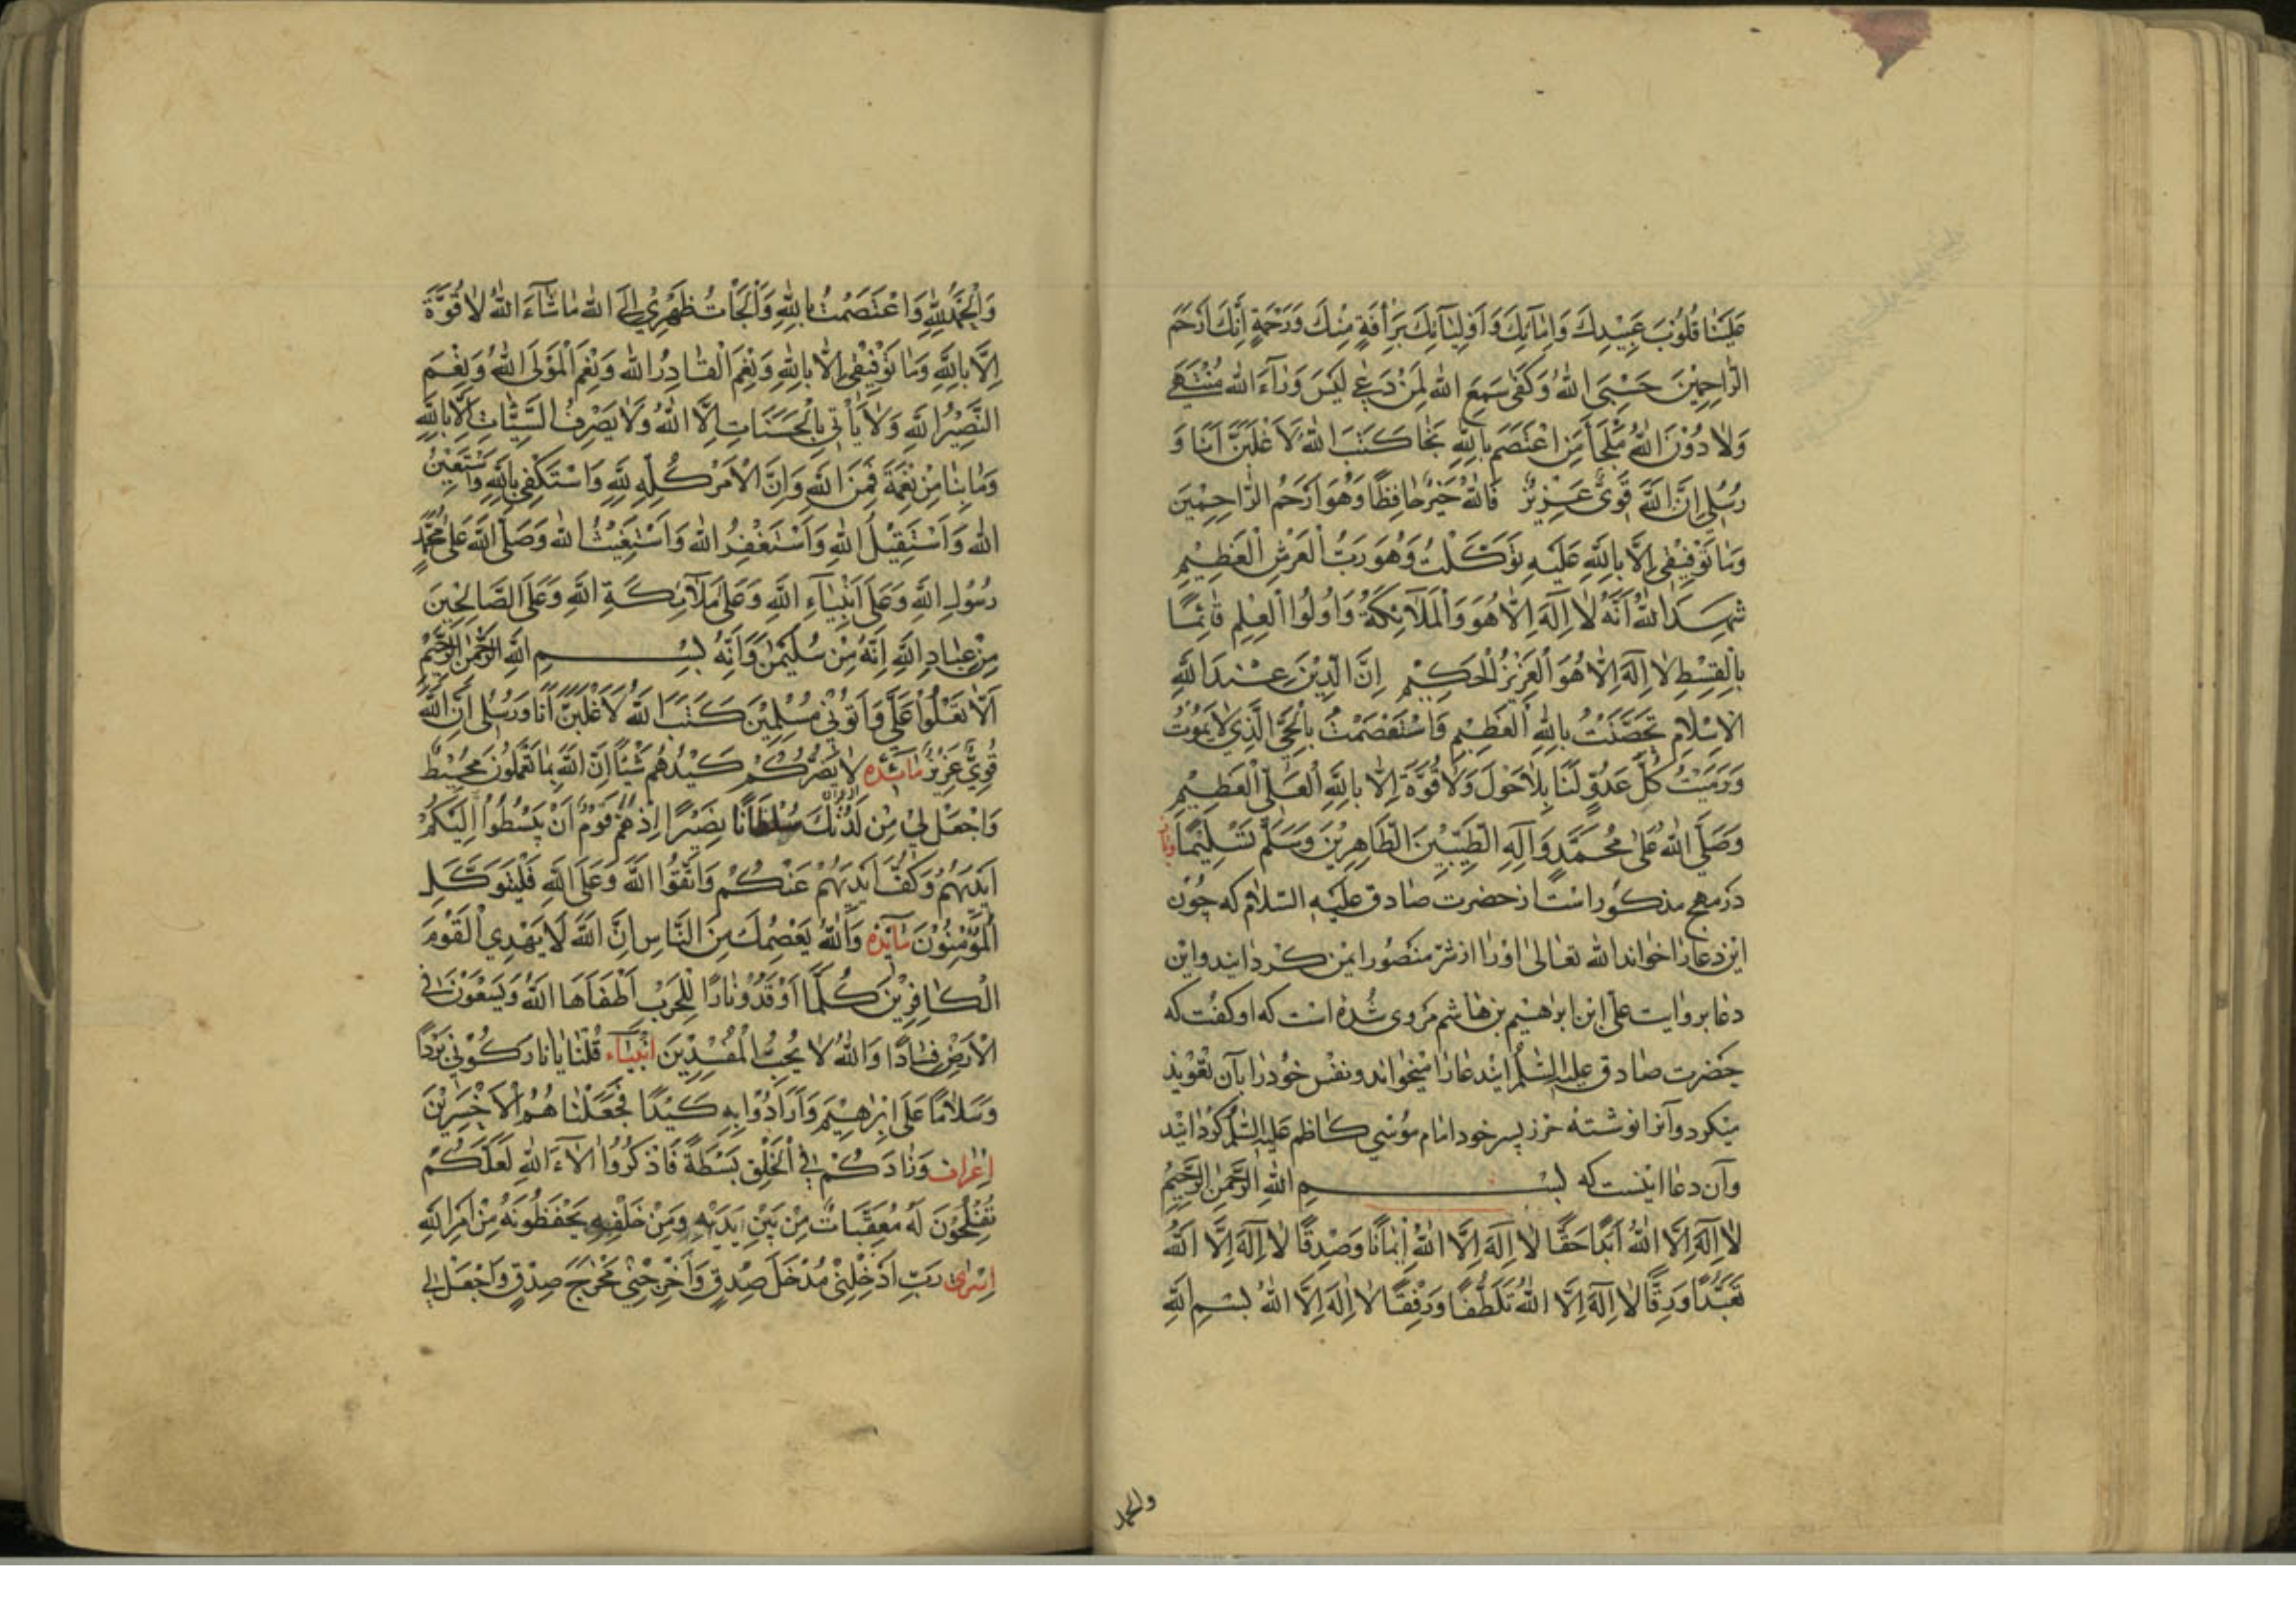 عَلَيْنَا قُلُوْبَ عَبِيْدِكَ وَاِمَآئِكَ وَاَوْلِيَآئِكَ بِرَأْفَةٍ مِنْكَ وَرَحْمَةٍ اِنَّكَ اَرْحَمُ
الرَّاحِمِيْنَ حَسْبِيَ اللهُ وَكَفٰى سَمِعَ اللهُ لِمَنْ دَعٰى لَيْسَ وَرَآءَ اللهِ مُنْتَهٰى
وَلَا دُوْنَ اللهِ مَلْجَأٌ مَنِ اعْتَصَمَ بِاللهِ نَجَا كَتَبَ اللهُ لَاَغْلِبَنَّ اَنَا وَ
رُسُلِى اِنَّ اللهَ قَوِىٌّ عَزِيْزٌ فَاللهُ خَيْرٌ حَافِظًا وَهُوَ اَرْحَمُ الرَّاحِمِيْنَ
وَمَا تَوْفِيْقِى اِلَّا بِاللهِ عَلَيْهِ تَوَكَّلْتُ وَهُوَ رَبُّ الْعَرْشِ الْعَظِيْمِ
شَهِدَ اللهُ اَنَّهُ لَا اِلٰهَ اِلَّا هُوَ وَالْمَلَآئِكَةُ وَاُولُوا الْعِلْمِ قَائِمًا
بِالْقِسْطِ لَا اِلٰهَ اِلَّا هُوَ الْعَزِيْزُ الْحَكِيْمِ اِنَّ الدِّيْنَ عِنْدَ اللهِ
الْاِسْلَامُ تَحَصَّنْتُ بِاللهِ الْعَظِيْمِ وَاسْتَعْصَمْتُ بِالْحَيِّ الَّذِيْ لَا يَمُوْتُ
وَرَمَيْتُ كُلَّ عَدُوٍّ لَنَا بِلَا حَوْلَ وَلَا قُوَّةَ اِلَّا بِاللهِ الْعَلِيِّ الْعَظِيْمِ
وَصَلَّى اللهُ عَلٰى مُحَمَّدٍ وَآلِهِ الطَّيِّبِيْنَ الطَّاهِرِيْنَ وَسَلَّمَ تَسْلِيْمًا
در مهج مذكور است از حضرت صادق عليه السلام كه چون
اين دعا را خواند الله تعالى او را از شر منصور ايمن كردانيد واين
دعا بروايت على ابن ابرهيم بن هاشم مروى شده است كه او كفت كه
حضرت صادق عليه السلم ايندعا را ميخواند ونفس خود را بآن تعويذ
ميكرد وآنرا نوشته حرز پسر خود امام موسى كاظم عليه السلم كردانيد
وآن دعا اينست كه بسم الله الرحمن الرحيم
لَا اِلٰهَ اِلَّا اللهُ اَبَدًا حَقًّا لَا اِلٰهَ اِلَّا اللهُ اِيْمَانًا وَصِدْقًا لَا اِلٰهَ اِلَّا اللهُ
تَعَبُّدًا وَرِقًّا لَا اِلٰهَ اِلَّا اللهُ تَلَطُّفًا وَرِفْقًا لَا اِلٰهَ اِلَّا اللهُ بِسْمِ اللهِ
والحمد
وَالْحَمْدُ لِلّٰهِ وَاعْتَصَمْتُ بِاللهِ وَاَلْجَأْتُ ظَهْرِيْ اِلَى اللهِ مَا شَآءَ اللهُ لَا قُوَّةَ
اِلَّا بِاللهِ وَمَا تَوْفِيْقِى اِلَّا بِاللهِ وَنِعْمَ الْقَادِرُ اللهُ وَنِعْمَ الْمَوْلَى اللهُ وَنِعْمَ
النَّصِيْرُ اللهُ وَلَا يَأْتِى بِالْحَسَنَاتِ اِلَّا اللهُ وَلَا يَصْرِفُ السَّيِّئَاتِ اِلَّا بِاللهِ
وَمَا بِنَا مِنْ نِعْمَةٍ فَمِنَ اللهِ وَاِنَّ الْاَمْرَ كُلَّهُ لِلّٰهِ وَاسْتَكْفِى بِاللهِ وَاَسْتَعِيْنُ
اللهَ وَاَسْتَقِيْلُ اللهَ وَاَسْتَغْفِرُ اللهَ وَاَسْتَغِيْثُ اللهَ وَصَلَّى اللهُ عَلٰى مُحَمَّدٍ
رَسُوْلِ اللهِ وَعَلٰى اَنْبِيَآءِ اللهِ وَعَلٰى مَلَآئِكَةِ اللهِ وَعَلَى الصَّالِحِيْنَ
مِنْ عِبَادِ اللهِ اِنَّهُ مِنْ سُلَيْمٰنَ وَاِنَّهُ بِسْمِ اللهِ الرَّحْمٰنِ الرَّحِيْمِ
اَلَّا تَعْلُوْا عَلَىَّ وَاْتُوْنِى مُسْلِمِيْنَ كَتَبَ اللهُ لَاَغْلِبَنَّ اَنَا وَرُسُلِى اِنَّ اللهَ
قَوِىٌّ عَزِيْزٌ مائده لَا يَضُرُّكُمْ كَيْدُهُمْ شَيْئًا اِنَّ اللهَ بِمَا تَعْمَلُوْنَ مُحِيْطٌ
وَاجْعَلْ لِيْ مِنْ لَدُنْكَ سُلْطَانًا نَصِيْرًا اِذْ هَمَّ قَوْمٌ اَنْ يَبْسُطُوْا اِلَيْكُمْ
اَيْدِيَهُمْ وَكَفَّ اَيْدِيَهُمْ عَنْكُمْ وَاتَّقُوا اللهَ وَعَلَى اللهِ فَلْيَتَوَكَّلِ
الْمُؤْمِنُوْنَ مائده وَاللهُ يَعْصِمُكَ مِنَ النَّاسِ اِنَّ اللهَ لَا يَهْدِى الْقَوْمَ
الْكَافِرِيْنَ كُلَّمَا اَوْقَدُوْ نَارًا لِلْحَرْبِ اَطْفَاَهَا اللهُ وَيَسْعَوْنَ فِى
الْاَرْضِ فَسَادًا وَاللهُ لَا يُحِبُّ الْمُفْسِدِيْنَ انبياء قُلْنَا يَا نَارُ كُوْنِى بَرْدًا
وَسَلَامًا عَلٰى اِبْرٰهِيْمَ وَاَرَادُوْا بِهِ كَيْدًا فَجَعَلْنَا هُمُ الْاَخْسَرِيْنَ
اعراف وَزَادَكُمْ فِى الْخَلْقِ بَسْطَةً فَاذْكُرُوْا اٰلَآءَ اللهِ لَعَلَّكُمْ
تُفْلِحُوْنَ لَهُ مُعَقِّبَاتٌ مِنْ بَيْنِ يَدَيْهِ وَمِنْ خَلْفِهِ يَحْفَظُوْنَهُ مِنْ اَمْرِ اللهِ
اسرى رَبِّ اَدْخِلْنِى مُدْخَلَ صِدْقٍ وَاَخْرِجْنِى مُخْرَجَ صِدْقٍ وَاجْعَلْ لِى